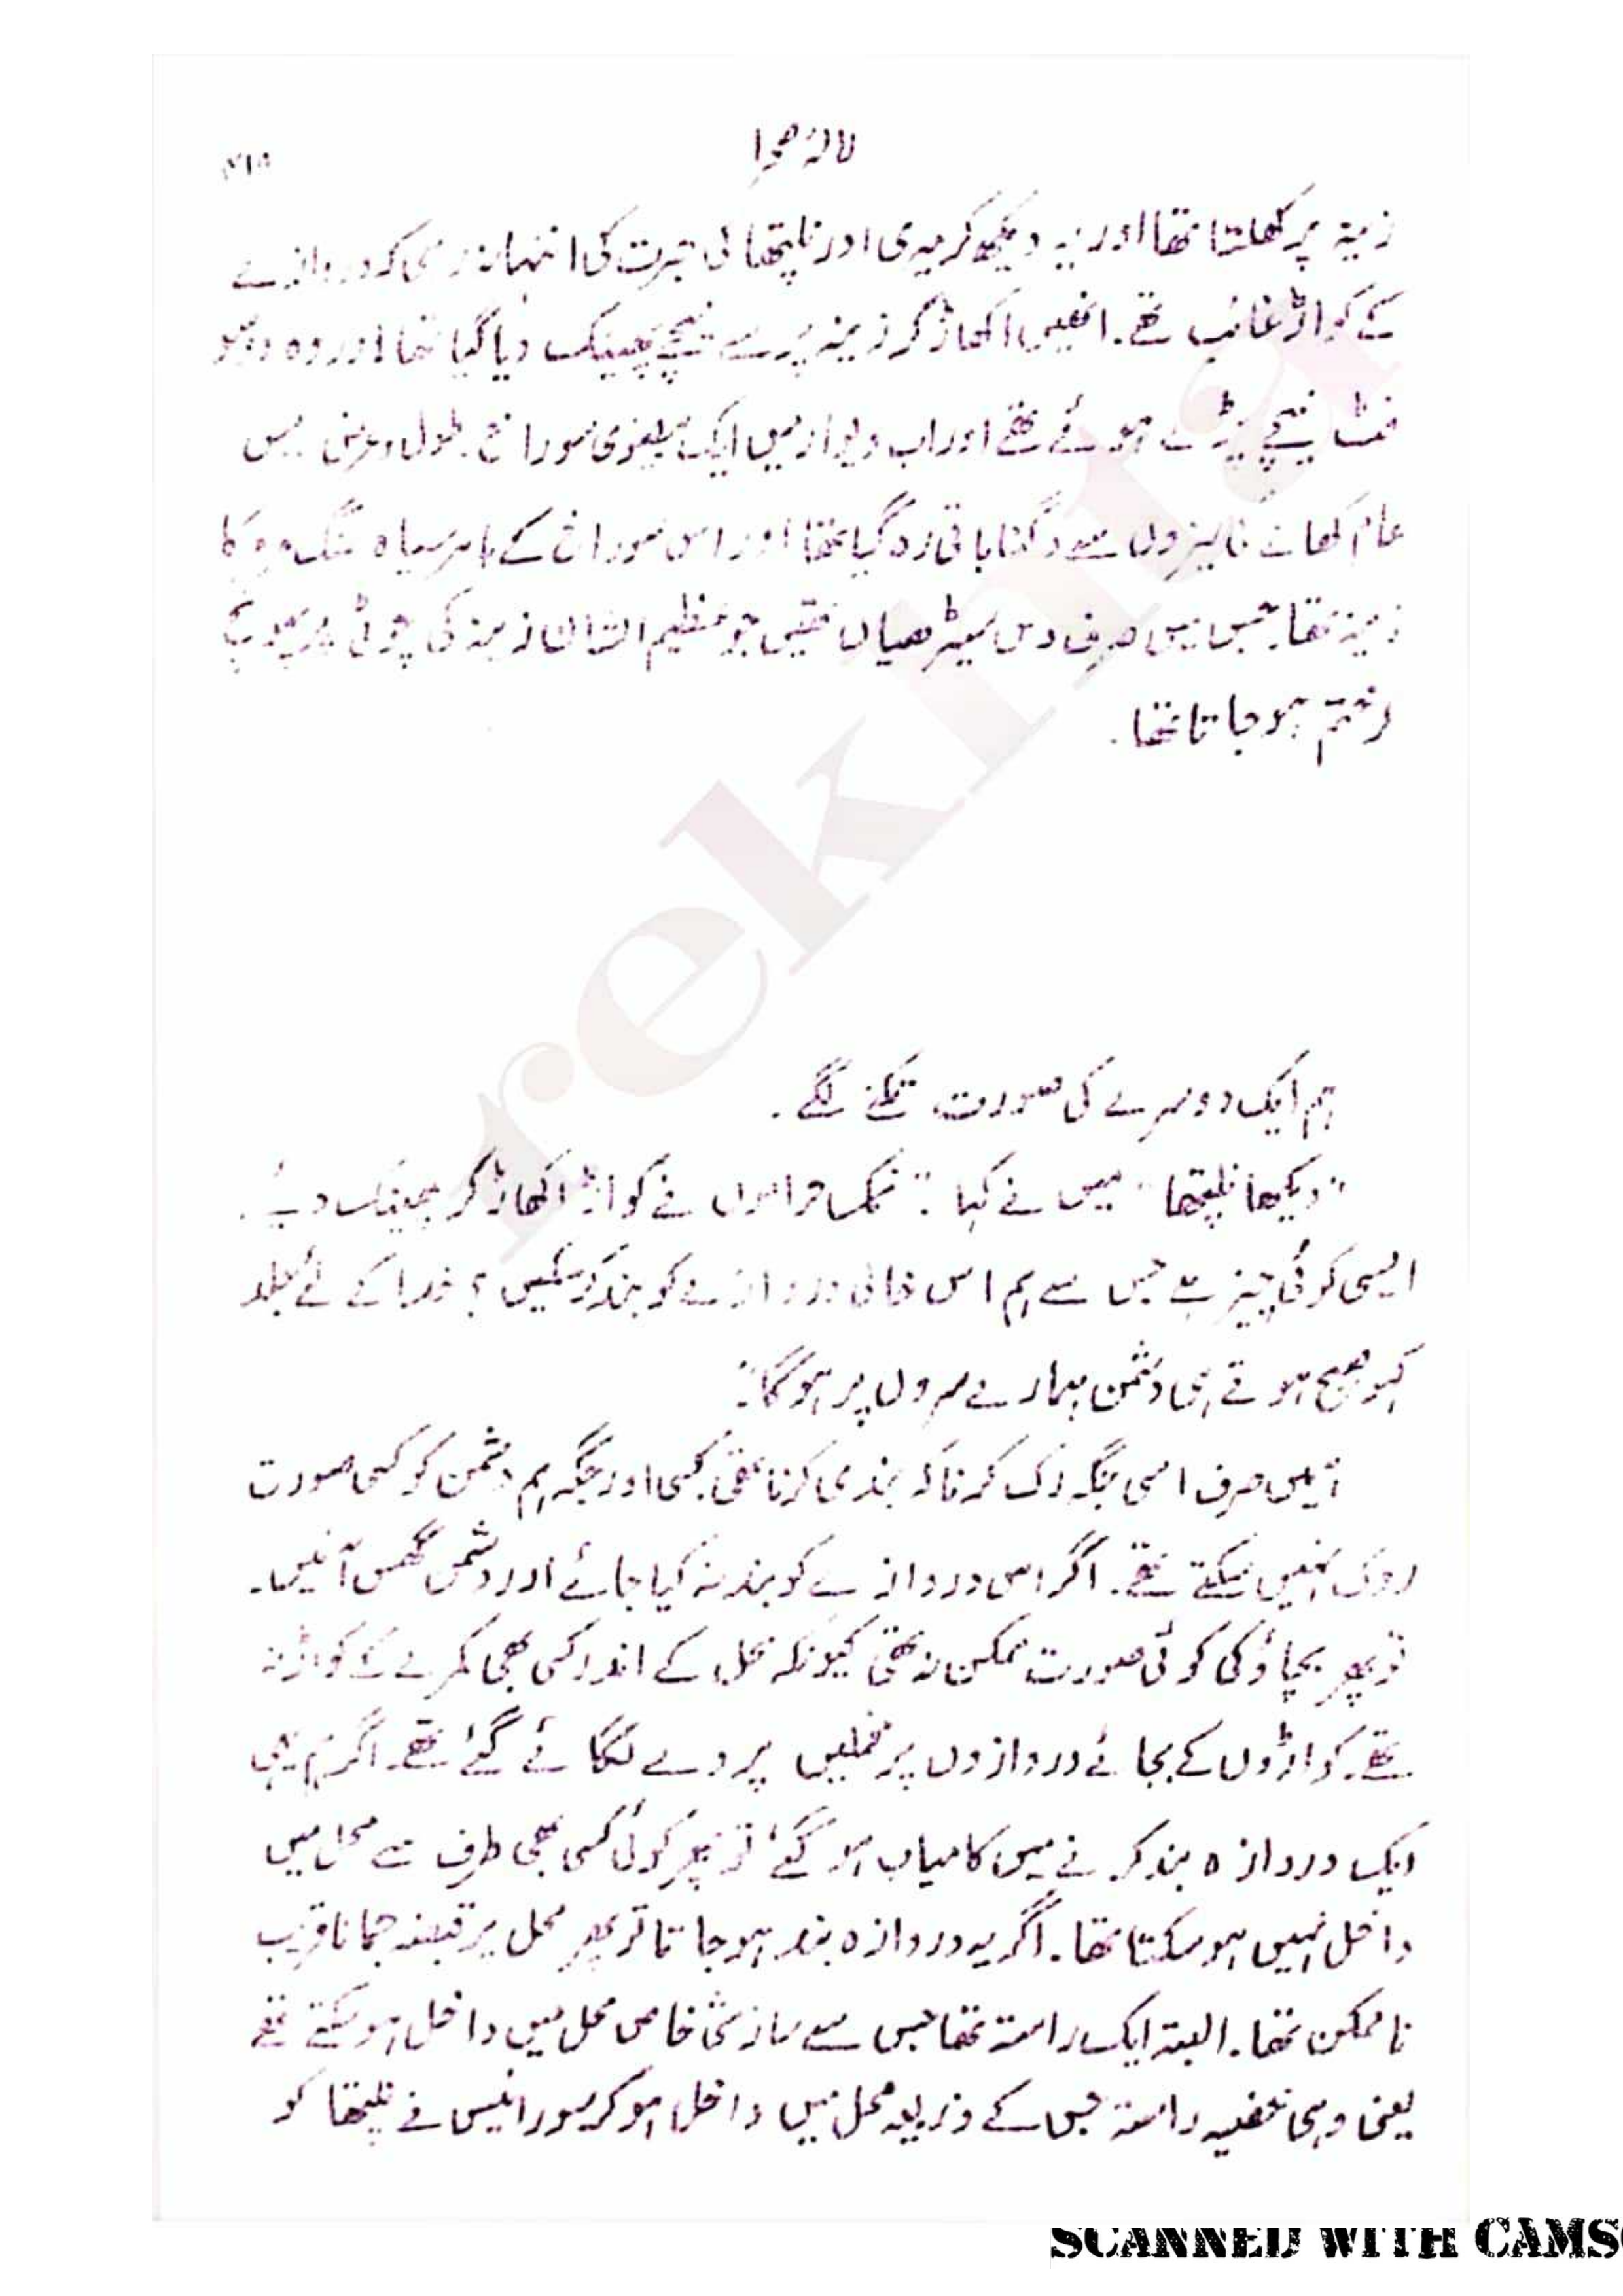 لالۂ صحرا
۴۱۵
زینہ پر کھلتا تھا اور یہ دیکھ کر میری اور نلپتھا کی حیرت کی انتہا نہ رہی کہ دروازے
کے کواڑ غائب تھے۔ انھیں اکھاڑ کر زینہ پر سے نیچے پھینک دیا گیا تھا اور وہ دو سو
فٹ نیچے پڑے ہوئے تھے اور اب دیوار میں ایک بیضوی سوراخ طول و عرض میں
عام کھانے کی میزوں سے دگنا باقی رہ گیا تھا اور اس سوراخ کے باہر سیاہ سنگ مرمر کا
زینہ تھا جس میں صرف دس سیڑھیاں تھیں جو عظیم الشان زینہ کی چوٹی پر پہونچ
کر ختم ہو جاتا تھا۔
ہم ایک دوسرے کی صورت تکنے لگے۔
"دیکھا نلپتھا" میں نے کہا۔ "نمک حراموں نے کواڑ اکھاڑ کر پھینک دیے۔
ایسی کوئی چیز ہے جس سے ہم اس خالی دروازے کو بند کر سکیں؟ خدا کے لئے جلد
کہو صبح ہوتے ہی دشمن ہمارے سروں پر ہوگا۔"
ہمیں صرف اسی جگہ رک کر ناکہ بندی کرنا تھی کسی اور جگہ ہم دشمن کو کسی صورت
روک نہیں سکتے تھے۔ اگر اس دروازے کو بند نہ کیا جائے اور دشمن گھس آئیں۔
تو پھر بچاؤ کی کوئی صورت ممکن نہ تھی کیونکہ محل کے اندر کسی بھی کمرے کے کواڑ نہ
تھے۔ کواڑوں کے بجائے دروازوں پر مخملیں پردے لٹکائے گئے تھے۔ اگر ہم یہی
ایک دروازہ بند کرنے میں کامیاب ہو گئے تو پھر کوئی کسی بھی طرف سے محل میں
داخل نہیں ہو سکتا تھا۔ اگر یہ دروازہ بند ہو جاتا تو پھر محل پر قبضہ جمانا قریب
نا ممکن تھا۔ البتہ ایک راستہ تھا جس سے سازشی خاص محل میں داخل ہو سکتے تھے
یعنی وہی خفیہ راستہ جس کے ذریعہ محل میں داخل ہو کر سورائیس نے نلپتھا کو
rekhta
SCANNED WITH CAMS